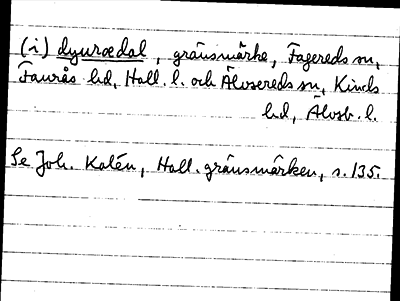 (i) dyuraedal, gränsmärke, Fagereds sn,
Faurås hd, Hall. l. och Älvsereds sn, Kinds
hd, Älvsb. l.
Se Joh. Kalén, Hall. gränsmärken, s. 135.